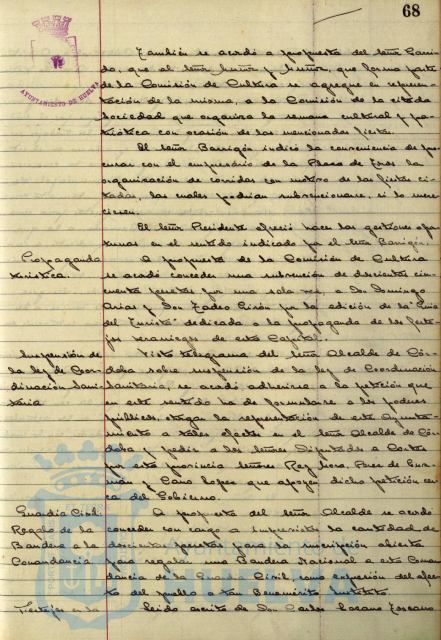 68
AYUNTAMIENTO DE HUELVA
También se acordó a propuesta del señor Garri-
do, que al señor Muñoz y Muñoz, que forma parte
de la Comisión de Cultura se agregue en represen-
tación de la misma, a la Comisión de la citada
Sociedad que organiza la semana cultural y pa-
triótica con ocasión de las mencionadas fiestas.
El señor Barrigón indicó la conveniencia de pro-
curar con el empresario de la Plaza de Toros la
organización de corridas con motivo de las fiestas ci-
tadas, las cuales podrían subvencionarse, si lo mere-
ciesen.
El señor Presidente ofreció hacer las gestiones opor-
tunas en el sentido indicado por el señor Barrigón.
Propaganda
turística.
A propuesta de la Comisión de Cultura
se acordó conceder una subvención de doscientas cin-
cuenta pesetas por una sola vez, a Dn. Domingo
Arias y Don Tadeo Girón por la edición de la "Guía
del Turista" dedicada a la propaganda de los feste-
jos veraniegos de esta Capital.
Suspensión de
la ley de Coor-
dinación Sani-
taria
Visto telegrama del señor Alcalde de Cór-
doba sobre suspensión de la ley de Coordinación
Sanitaria, se acordó adherirse a la petición que
en este sentido ha de formularse a los poderes
públicos, otorgar la representación de este Ayunta-
miento a tales efectos en el señor Alcalde de Cór-
doba y pedir a los señores Diputados a Cortes
por esta provincia señores Rey Mora, Pérez de Guz-
mán y Cano López que apoyen dicha petición cer-
ca del Gobierno.
Guardia Civil:
Regalo de la
Bandera a la
Comandancia
A propuesta del señor Alcalde se acordó
conceder con cargo a imprevistos la cantidad de
doscientas pesetas para la suscripción abierta
para regalar una Bandera Nacional a esta Coman-
dancia de la Guardia Civil, como expresión del afec-
to del pueblo a tan Benemérito Instituto.
Festejos en la
Leído escrito de Don Carlos Lozano Lozano
Ayuntamiento